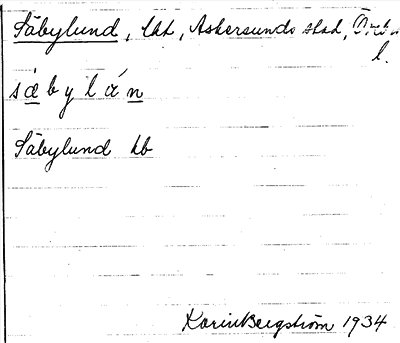 Säbylund, lht, Askersunds stad, Örebro
l.
sæbylán
Säbylund hb
Karin Bergström 1934